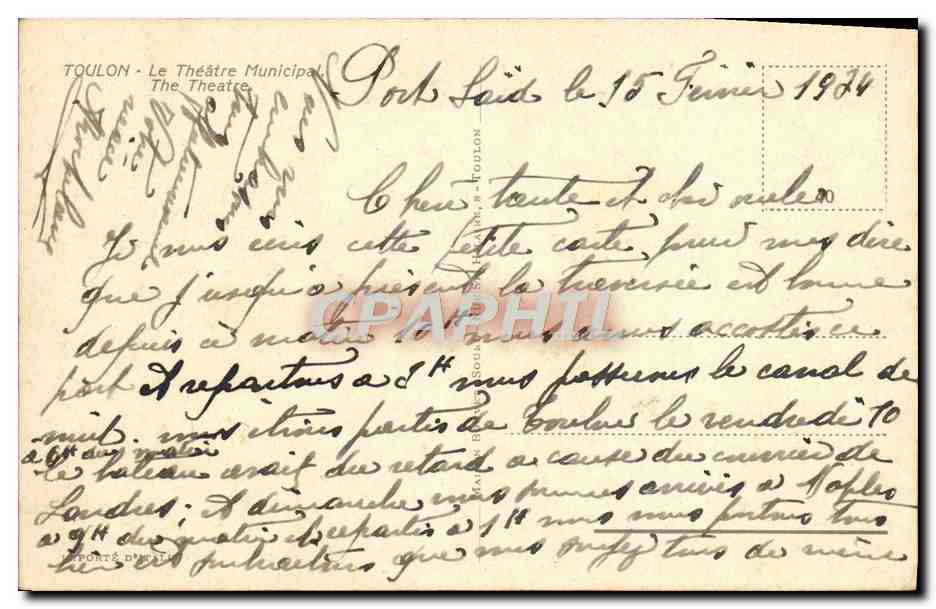 TOULON - Le Théâtre Municipal.
The Theatre.
Port Saïd le 15 Février 1924
Chere tante et cher oncle
Je vous ecris cette petite carte pour vous dire
que jusqu'a présent la traversée est bonne
depuis ce matin 10H nous avons accostés ce
port et repartons a 8H nous passerons le canal de
nuit. nous étions partis de Toulon le vendredi 10
a 6H du matin
le bateau avait du retard a cause du courrier de
Londres; et dimanche nous sommes arrivés à Naples
a 9H du matin et repartis à 1H nous nous portons tous
bien et souhaitons que vous soyez tous de même
Vous
embrassons
tous
affectueusement
Votre
CPAPHIL
TOULON
IMPORTÉ D'ITALIE